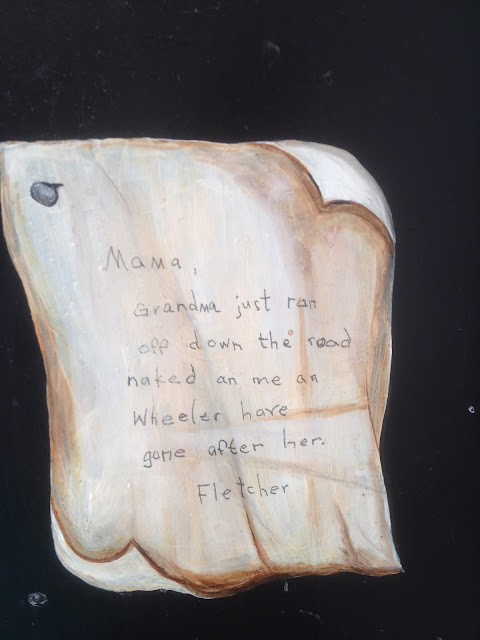 Mama,
Grandma just ran
off down the road
naked an me an
Wheeler have
gone after her.
Fletcher